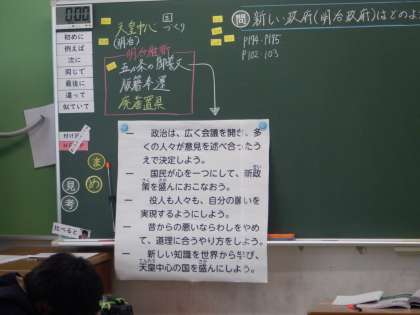 初めに
例えば
次に
同じで
最後に
違って
似ていて
天皇中心 国 づくり
(明治)
明治維新
五か条の御誓文
版籍奉還
廃藩置県
問 新しい政府(明治政府)はどのよ
P144 P145
P102 103
ま
め
見
考
比べると
一 政治は、広く会議を開き、多
くの人々が意見を述べ合ったう
えで決定しよう。
一 国民が心を一つにして、新政
策を盛んにおこなおう。
一 役人も人々も、自分の願いを
実現するようにしよう。
一 昔からの悪いならわしをやめ
て、道理に合うやり方をしよう。
一 新しい知識を世界から学び、
天皇中心の国を盛んにしよう。